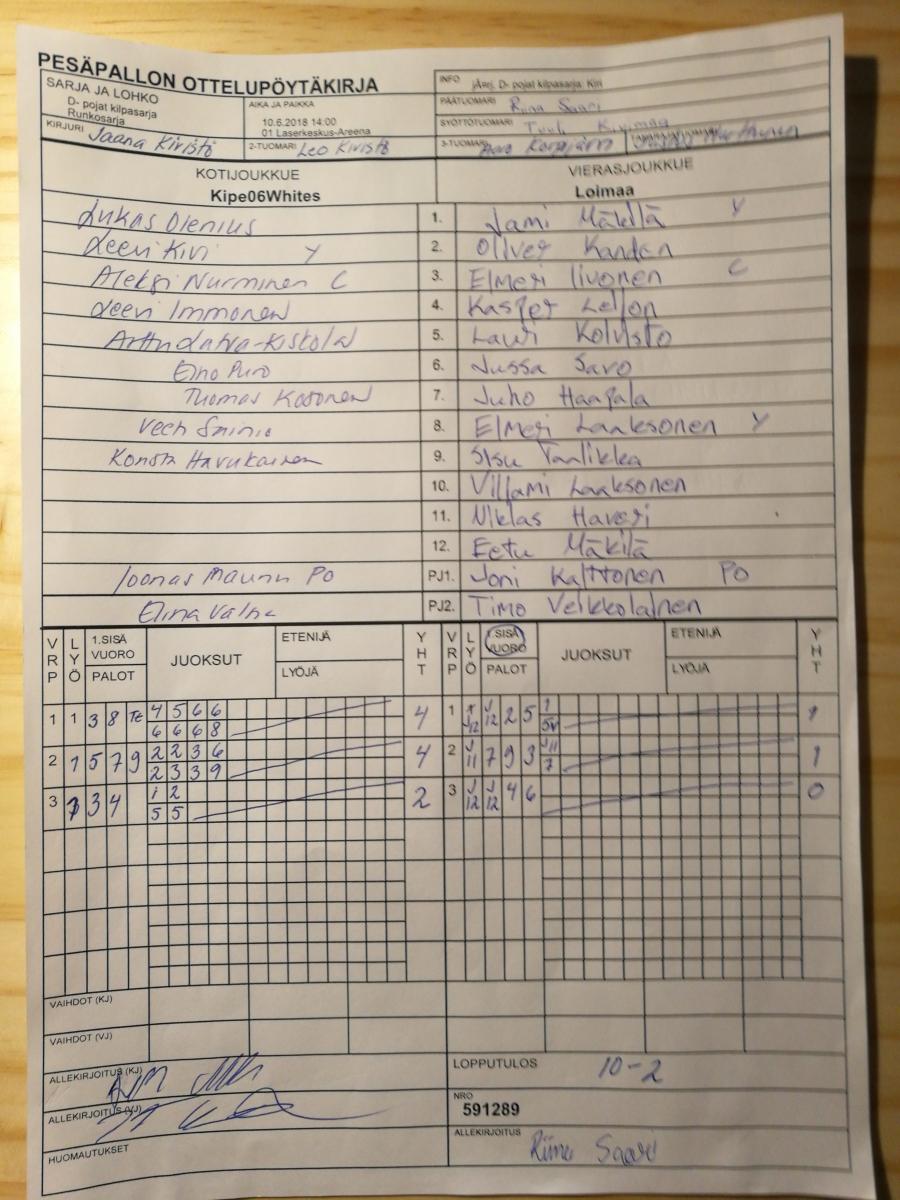 PESÄPALLON OTTELUPÖYTÄKIRJA
SARJA JA LOHKO
D- pojat kilpasarja
Runkosarja
AIKA JA PAIKKA
10.6.2018 14:00
01 Laserkeskus-Areena
INFO
jÄrj. D- pojat kilpasarja: Kiri
PÄÄTUOMARI Riina Saari
SYÖTTÖTUOMARI Tuuli Kivimaa
KIRJURI Jaana Kivistö
2-TUOMARI Leo Kivistö
3-TUOMARI
KOTIJOUKKUE
Kipe06Whites
VIERASJOUKKUE
Loimaa
Lukas Olenius 1. Jami Mäkilä Y
Leevi Kivi Y 2. Oliver Kandan
Aleksi Nurminen C 3. Elmeri Iivonen C
Leevi Immonen 4. Kasper
5. Lauri Koivisto
Eino Puro 6. Jussa Savo
Thomas Kosonen 7. Juho Haapala
8. Elmeri Laaksonen Y
Konsta Havukainen 9. Sisu Taalikka
10. Villami Laaksonen
11. Niklas Haveri
12. Eetu Mäkilä
Joonas PO PJ1. Joni Kalttonen PO
Elina PJ2. Timo Veikkolainen
VRP LYÖ 1.SISÄ VUORO PALOT JUOKSUT ETENIJÄ LYÖJÄ YHT VRP LYÖ 1.SISÄ VUORO PALOT JUOKSUT ETENIJÄ LYÖJÄ YHT
1 1 3 8 Te 4 5 6 6 4 1 J12 2 5 1 1
6 6 6 8
2 1 5 7 9 2 2 3 6 4 2 J11 7 9 3 J11 1
2 3 3 9 7
3 3 4 1 2 2 3 J12 J12 4 6 0
5 5
VAIHDOT (KJ)
VAIHDOT (VJ)
ALLEKIRJOITUS (KJ)
LOPPUTULOS 10-2
ALLEKIRJOITUS (VJ)
NRO
591289
HUOMAUTUKSET
ALLEKIRJOITUS
Riina Saari